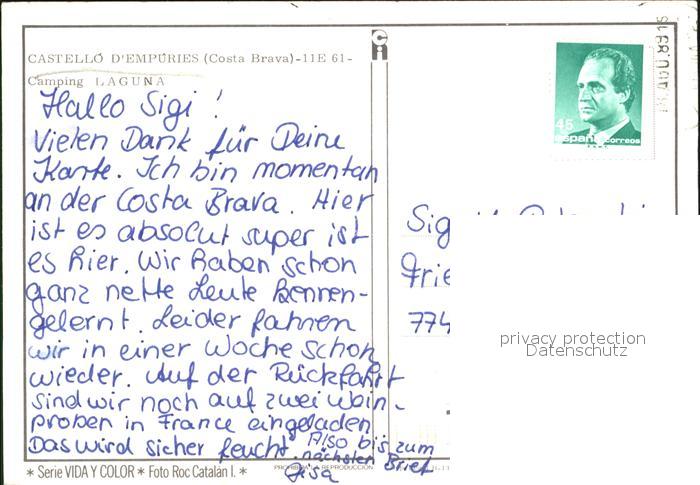 CASTELLÓ D'EMPÚRIES (Costa Brava)-11E 61-
Camping LAGUNA
Hallo Sigi!
Vielen Dank für Deine
Karte. Ich bin momentan
an der Costa Brava. Hier
ist es absolut super ist
es hier. Wir haben schon
ganz nette Leute kennen-
gelernt. Leider fahren
wir in einer Woche schon
wieder. Auf der Rückfahrt
sind wir noch auf zwei Wein-
proben in France eingeladen
Das wird sicher feucht. Also bis zum
nächsten Brief
Gisa
* Serie VIDA Y COLOR * Foto Roc Catalán I. *
PROHIBIDA LA REPRODUCCIÓN
45
españa correos
Sig
Frie
774
privacy protection
Datenschutz